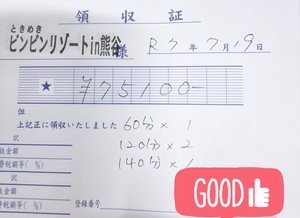 領収証
ときめき
ビンビンリゾートin熊谷 様 R7年7月19日
★ ¥75100-
但
上記正に領収いたしました 60分×1
訳 120分×2
金額 140分×1
費税額等(%)
金額
費税額等(%) 登録番号
GOOD